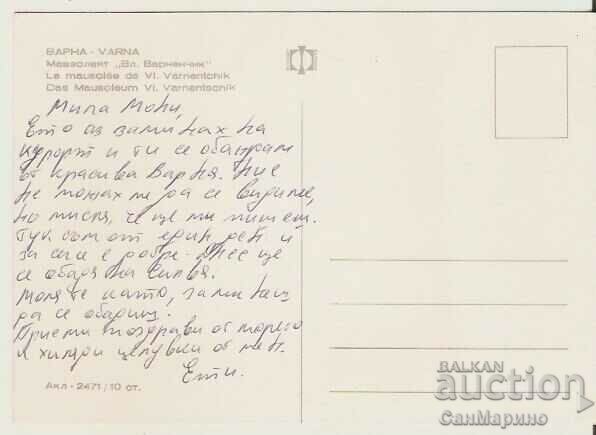 ВАРНА - VARNA
Мавзолеят „Вл. Варненчик"
Le mausolée de Vl. Varnentchik
Das Mausoleum Vl. Varnentschik
Мила Мони,
Ето аз заминах на
курорт и ти се обаждам
от красива Варна. Ние
не можахме да се видиме,
но мисля, че ще ми пишеш.
Тук съм от един ден и
за сега е добре. Днес ще
се обадя на Силвя.
Моля те като, заминеш
да се обадиш.
Приеми поздрави от морето
и хиляди целувки от мен.
Ети.
Акл - 2471/10 ст.
BALKAN
auction
СанМарино